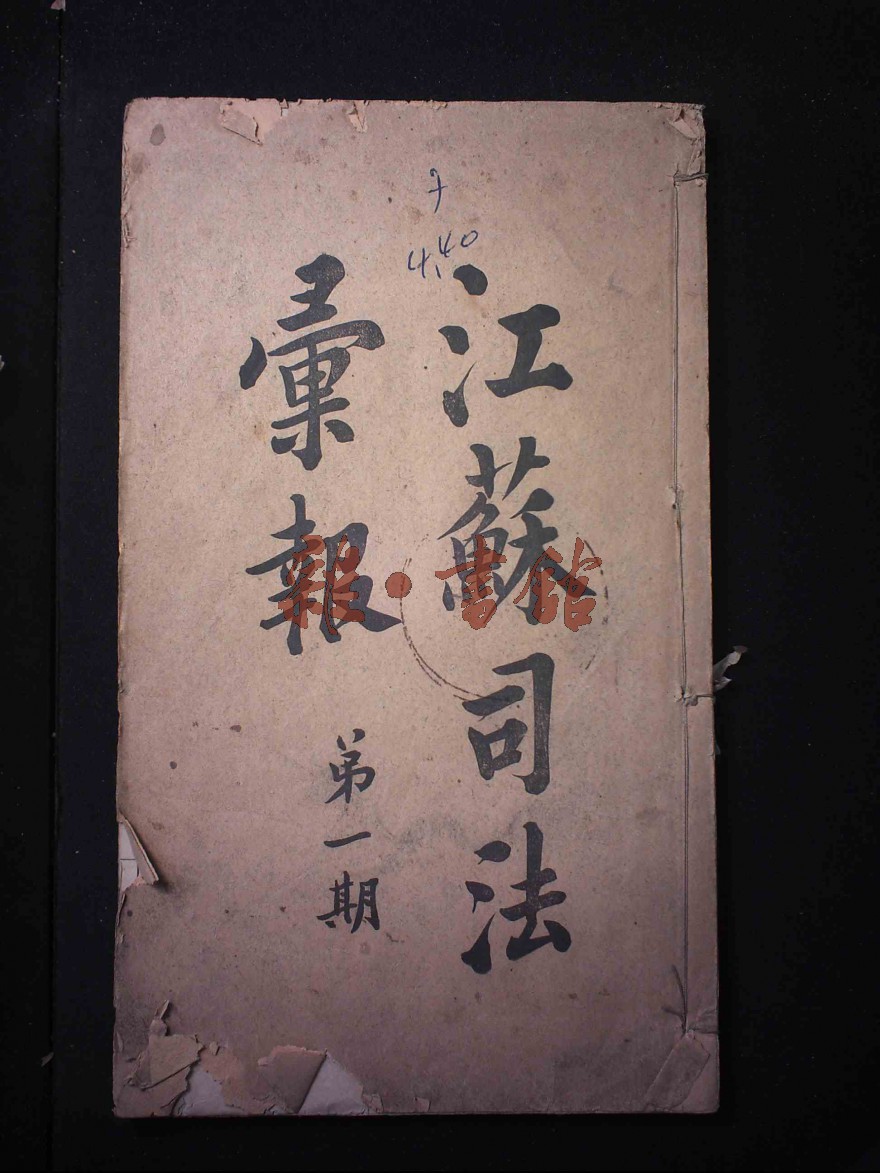 江蘇司法
彙報
第一期
4.40
報·書館